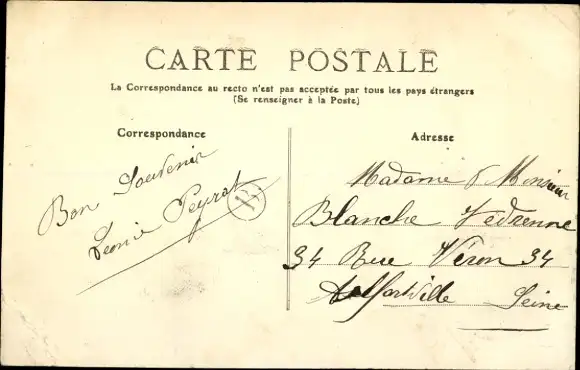 CARTE POSTALE
La Correspondance au recto n'est pas acceptée par tous les pays étrangers
(Se renseigner à la Poste)
Correspondance
Bon Souvenir
Léonie Peyrat
Adresse
Madame & Monsieur
Blanche Védrenne
34 Rue Véron 34
Alfortville Seine